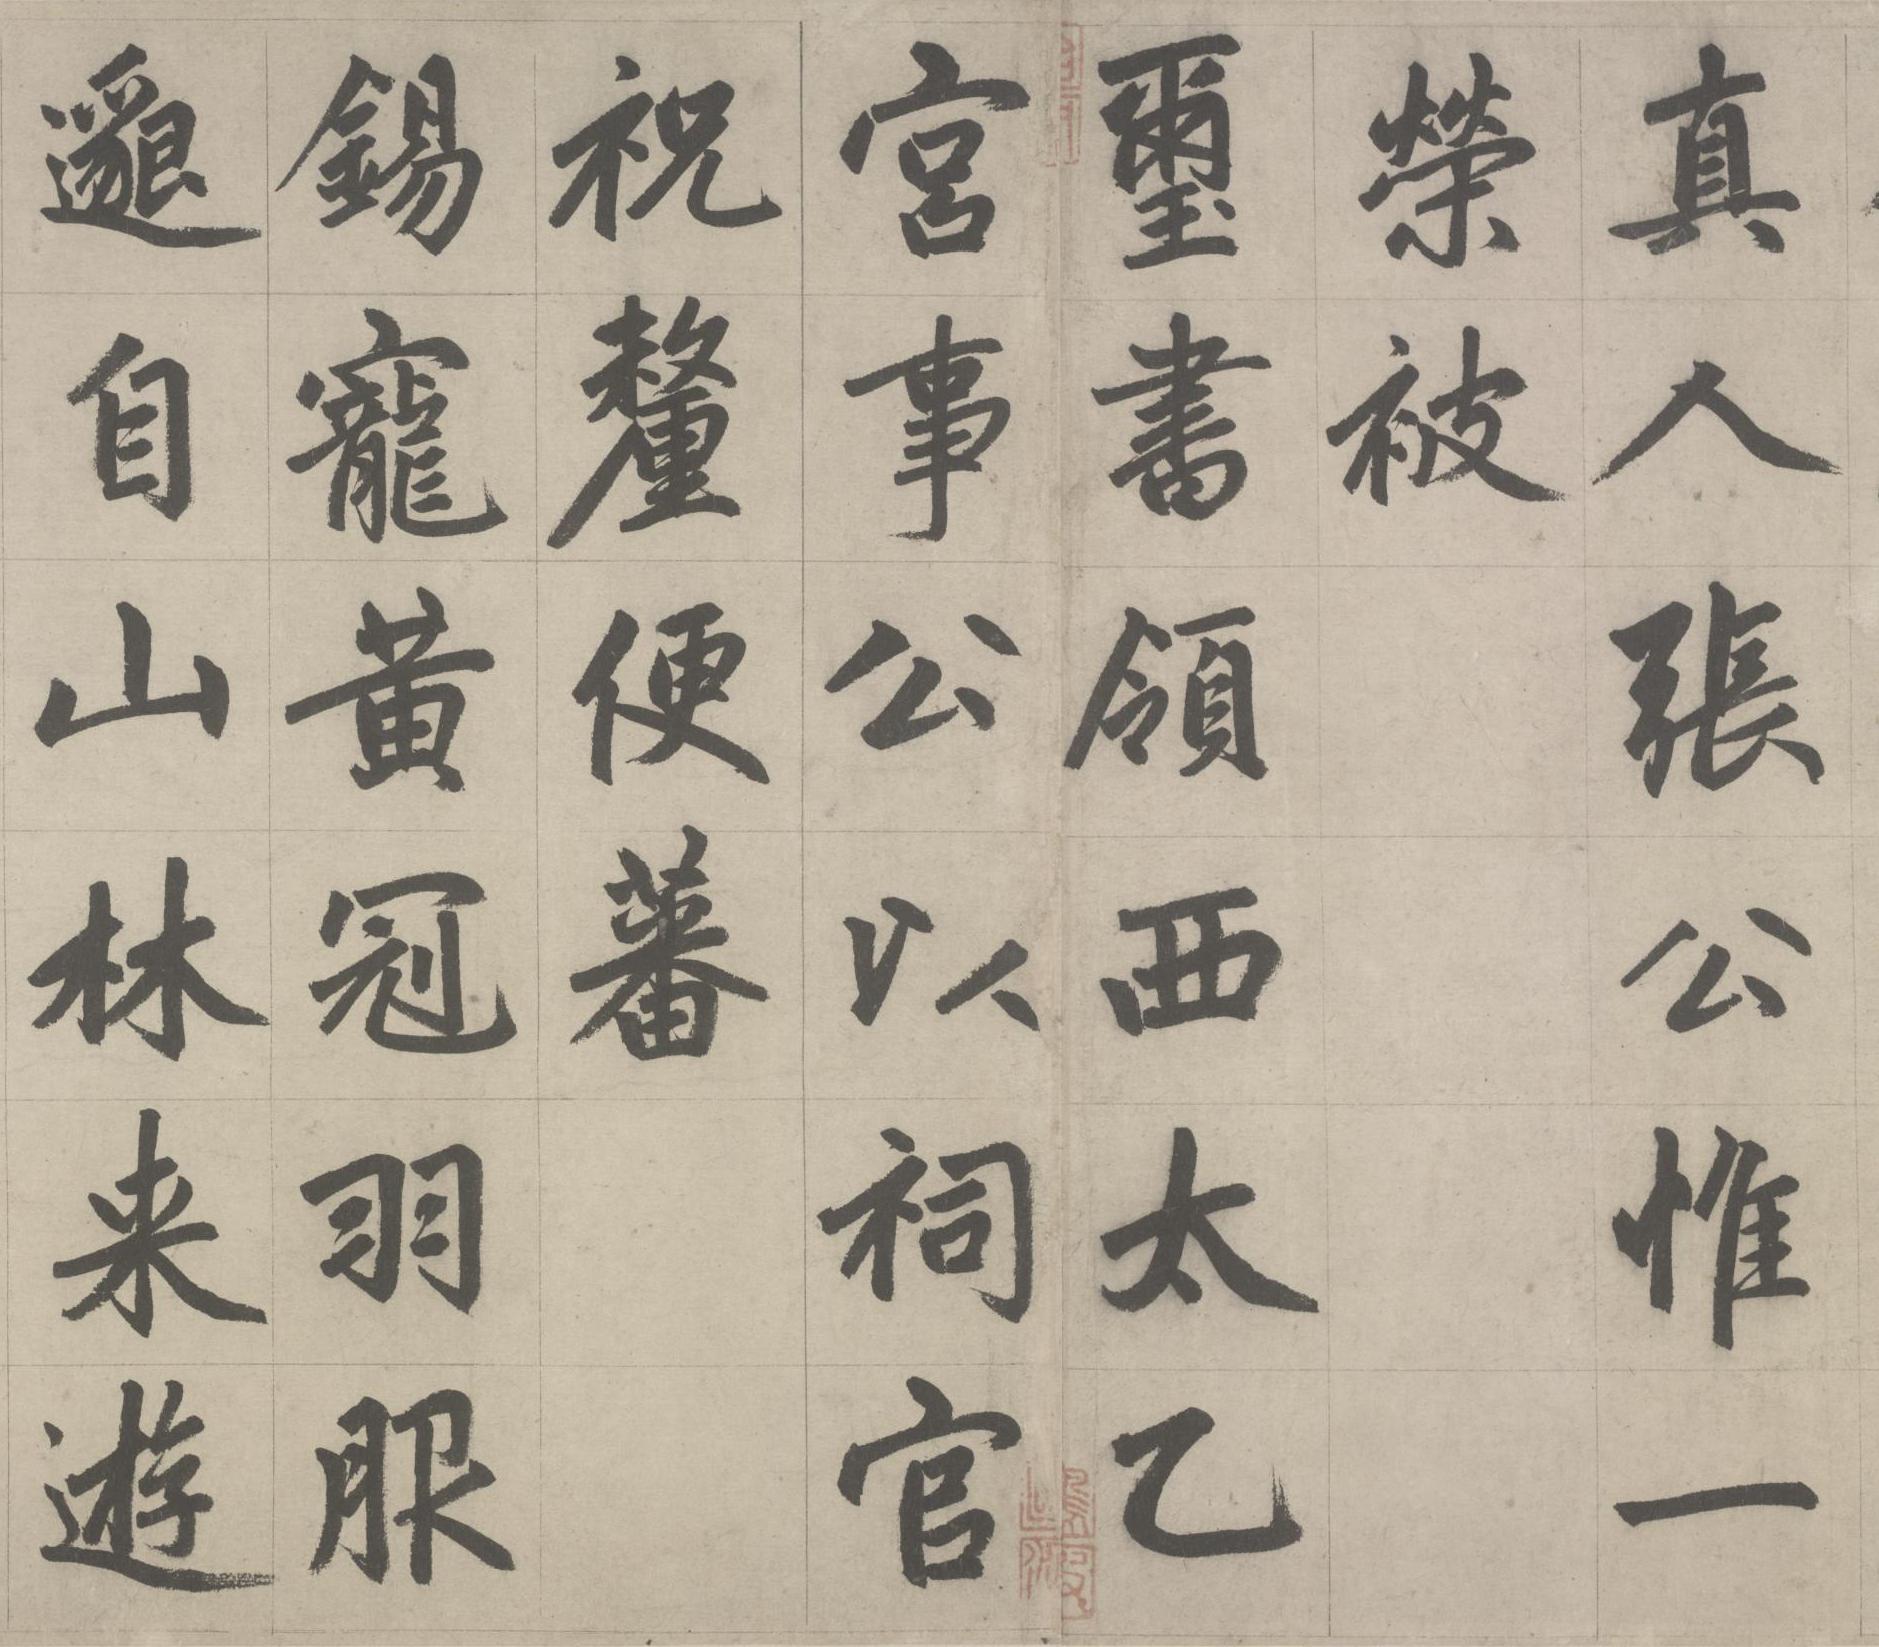 真人張公惟一
榮被
璽書領西太乙
宮事公以祠官
祝釐便蕃
錫寵黃冠羽服
邈自山林来遊